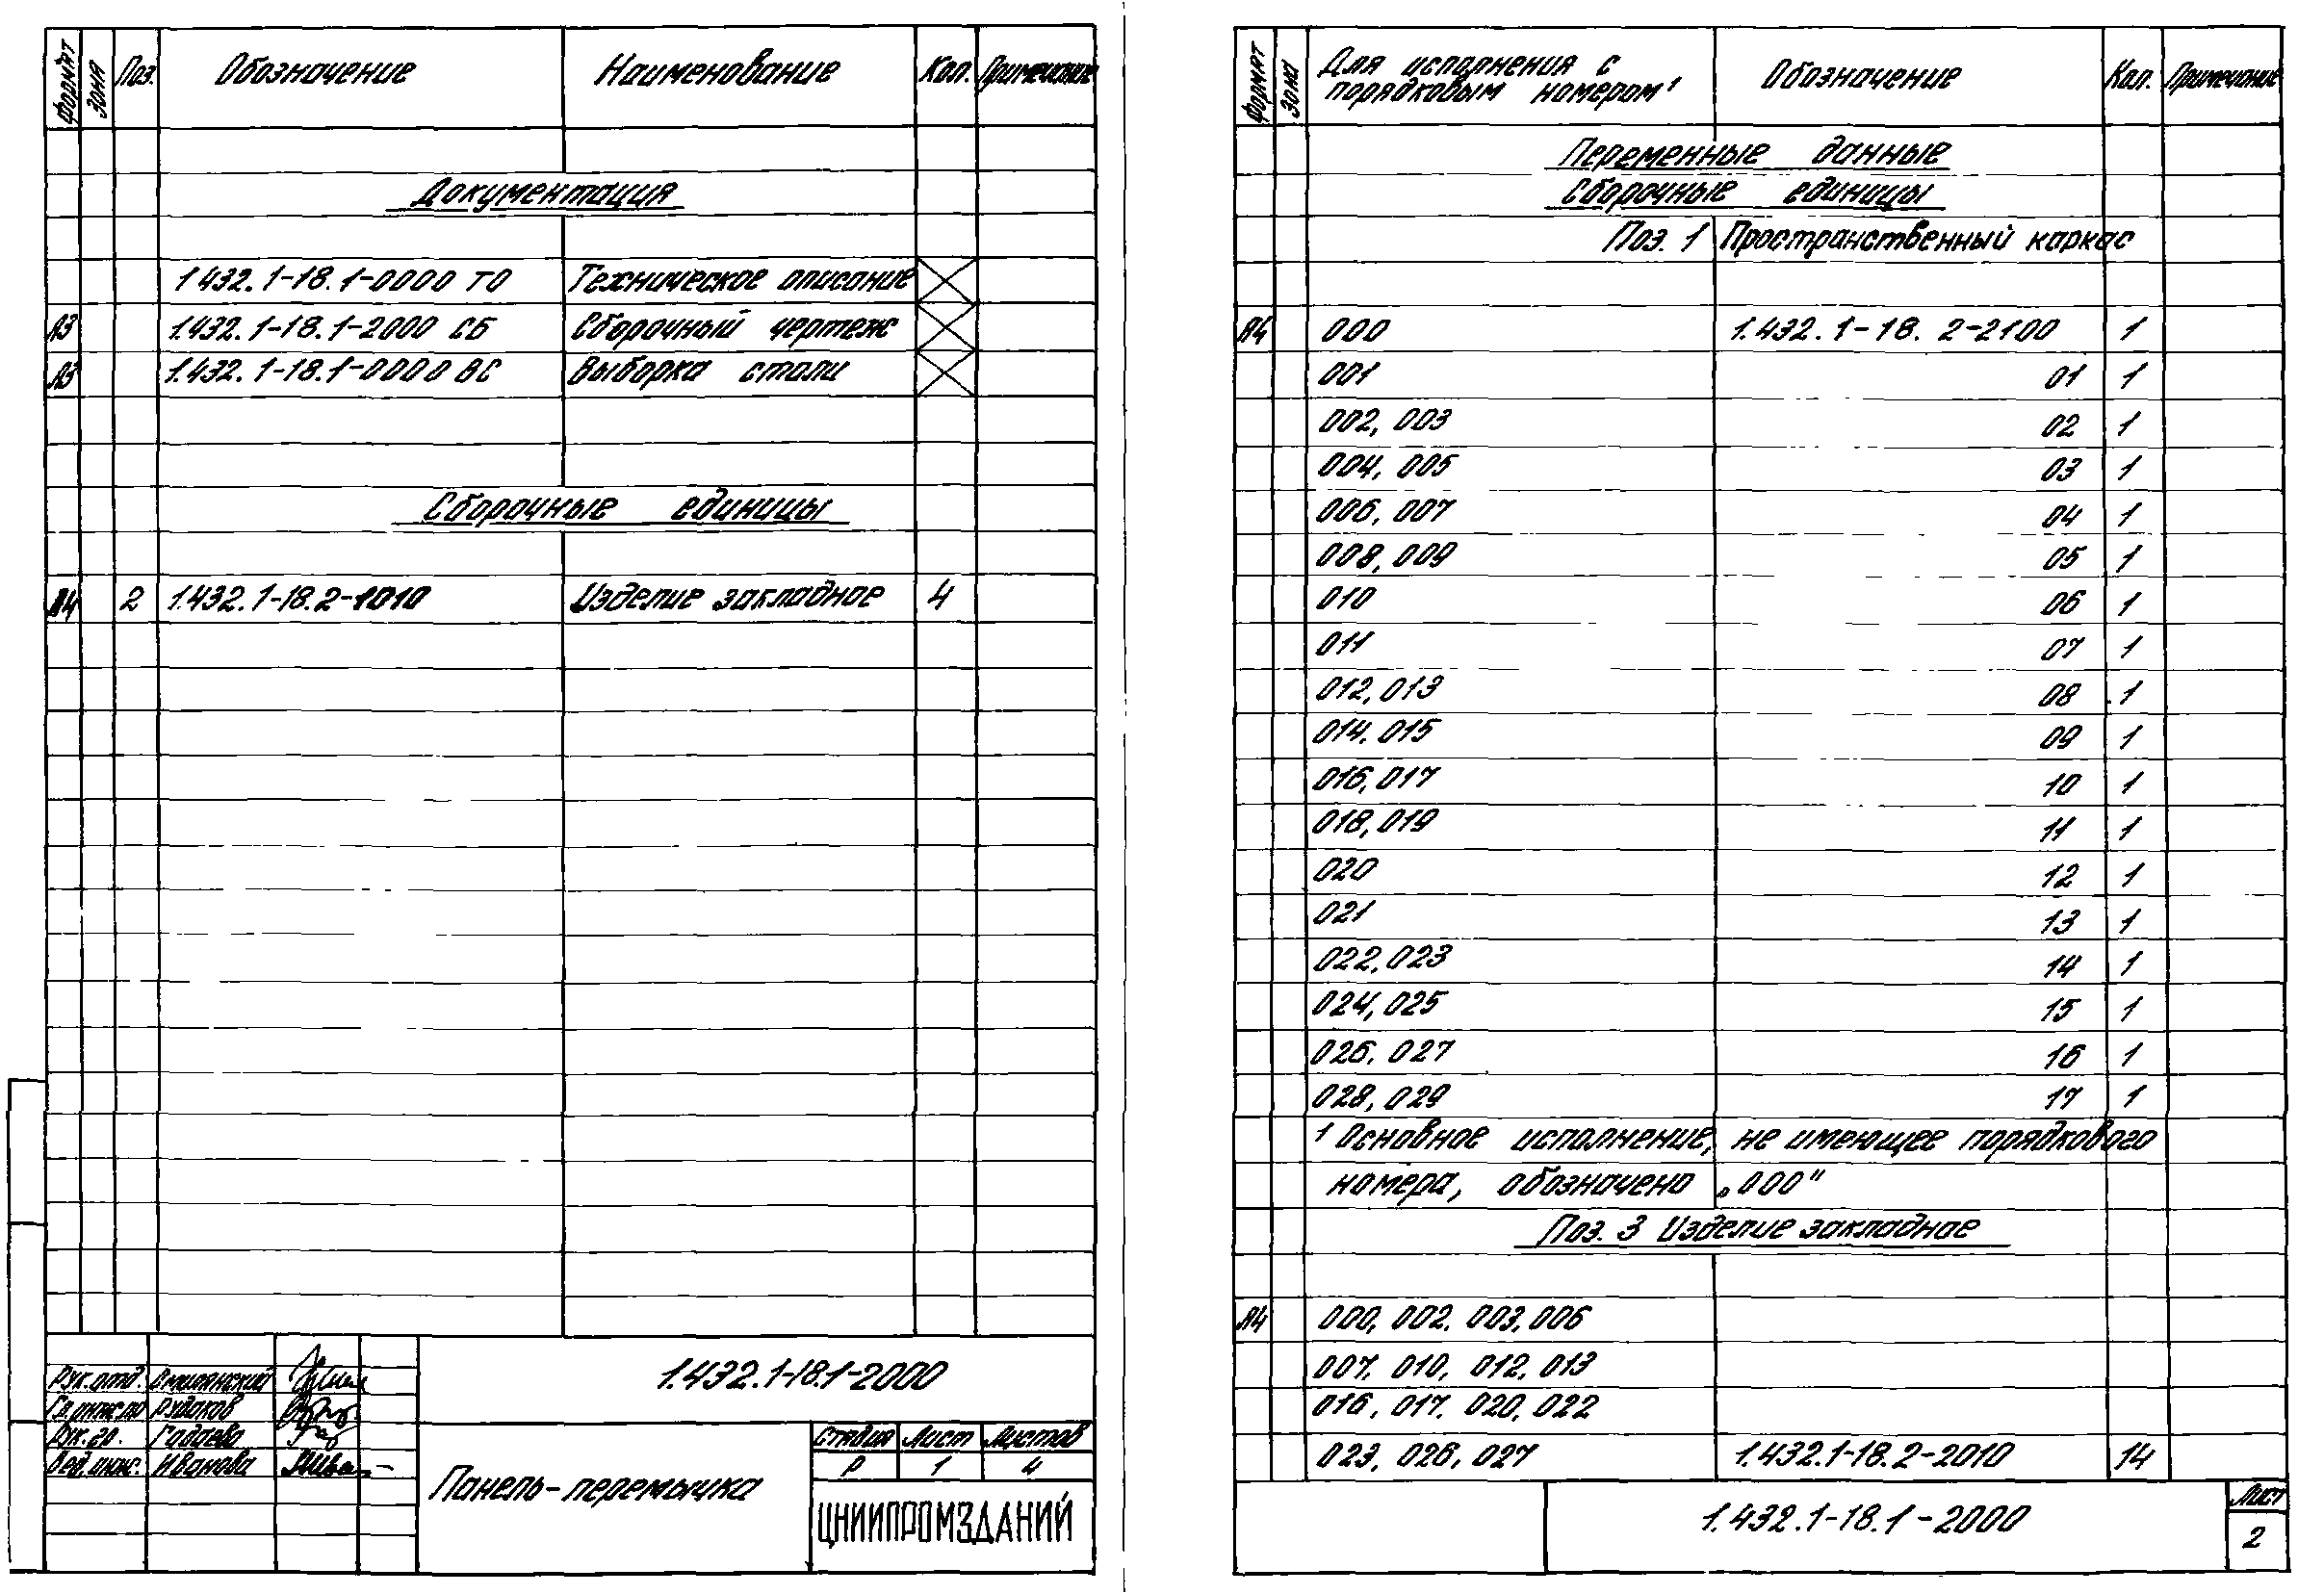 Формат Зона Поз. Обозначение Наименование Кол. Примечание
Документация
1.432.1-18.1-0000 ТО Техническое описание
А3 1.432.1-18.1-2000 СБ Сборочный чертеж
А3 1.432.1-18.1-0000 ВС Выборка стали
Сборочные единицы
А4 2 1.432.1-18.2-1010 Изделие закладное 4
1.432.1-18.1-2000
Рук. отд.
Рудаков
Рук. гр. Гадаева
Вед. инж. Иванова
Панель-перемычка
Стадия Лист Листов
Р 1 4
ЦНИИПРОМЗДАНИЙ
Формат Зона Для исполнения с порядковым номером¹ Обозначение Кол. Примечание
Переменные данные
Сборочные единицы
Поз. 1 Пространственный каркас
А4 000 1.432.1-18.2-2100 1
001 01 1
002, 003 02 1
004, 005 03 1
006, 007 04 1
008, 009 05 1
010 06 1
011 07 1
012, 013 08 1
014. 015 09 1
016, 017 10 1
018, 019 11 1
020 12 1
021 13 1
022, 023 14 1
024, 025 15 1
026, 027 16 1
028, 029 17 1
1 Основное исполнение, не имеющее порядкового
номера, обозначено „000"
Поз. 3 Изделие закладное
А4 000, 002. 003, 006
007. 010, 012, 013
016, 017. 020, 022
023, 026, 027 1.432.1-18.2-2010 14
1.432.1-18.1-2000
Лист
2